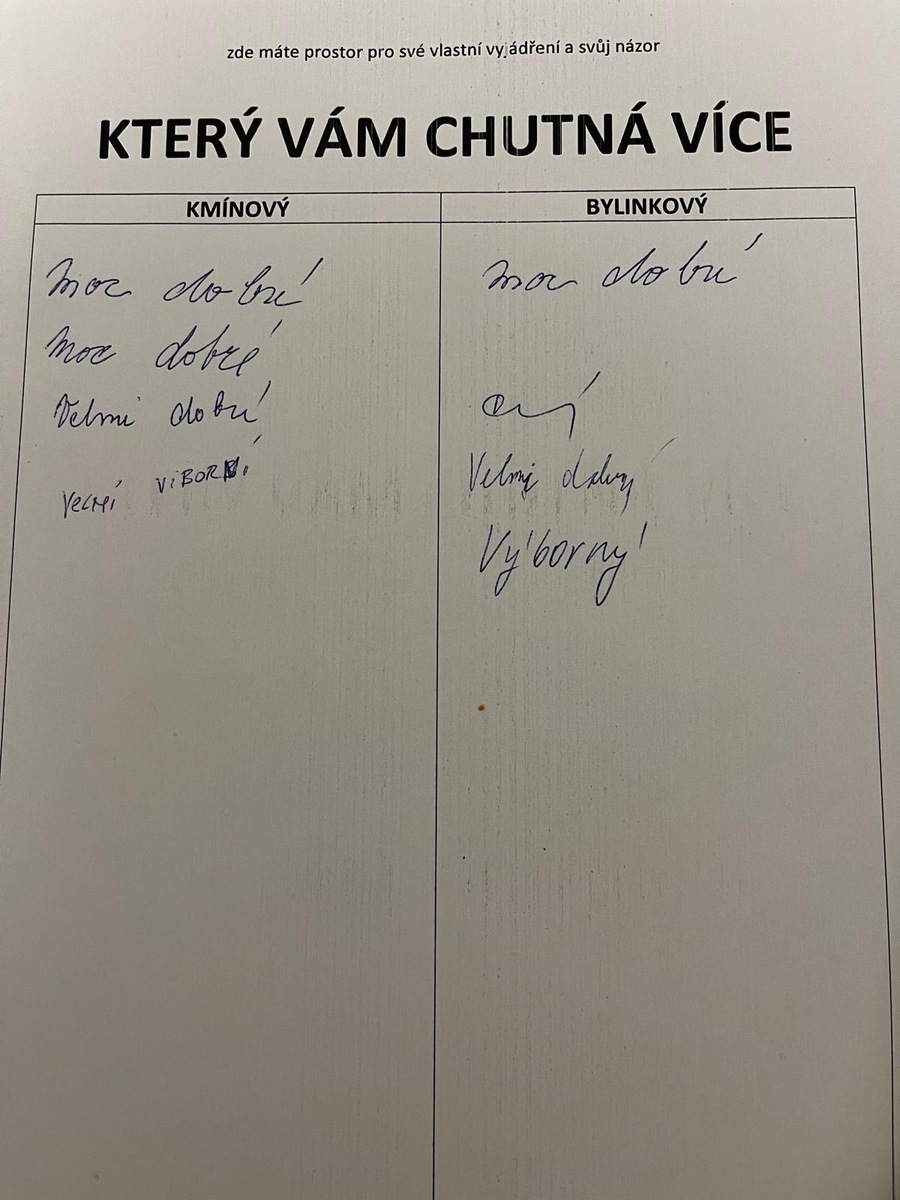 zde máte prostor pro své vlastní vyjádření a svůj názor
KTERÝ VÁM CHUTNÁ VÍCE
KMÍNOVÝ
BYLINKOVÝ
Moc dobré
Moc dobré
Velmi dobré
VELMI VIBORNÍ
moc dobré
Velmi dobrý
Výborný